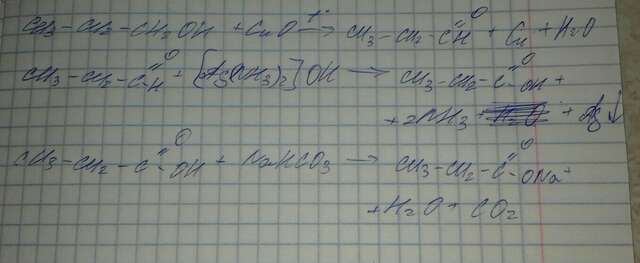 CH3-CH2-CH2OH + CuO t° → CH3-CH2-C=O H + Cu + H2O
CH3-CH2-C=O H + [Ag(NH3)2]OH → CH3-CH2-C=O OH +
+ 2NH3 + Ag↓
CH3-CH2-C=O OH + NaHCO3 → CH3-CH2-C=O ONa +
+ H2O + CO2